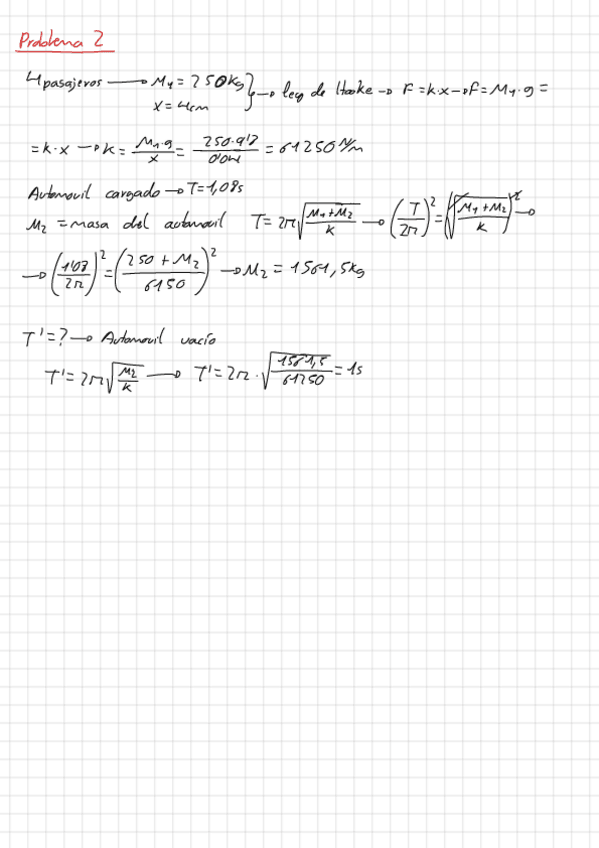 Problema 2
4 pasajeros → M₁ = 250kg } → ley de Hooke → F = k·x → F = M₁·g =
x = 4cm
= k·x → k = M₁·g/x = 250·9'8/0'04 = 61250 N/m
Automovil cargado → T = 1,08s
M₂ = masa del automovil T = 2π√((M₁+M₂)/k) → (T/2π)² = (√((M₁+M₂)/k))² →
→ (1'08/2π)² = ((250 + M₂)/6150)² → M₂ = 1561,5kg
T' = ? → Automovil vacío
T' = 2π√(M₂/k) → T' = 2π·√(1561,5/61250) = 1s